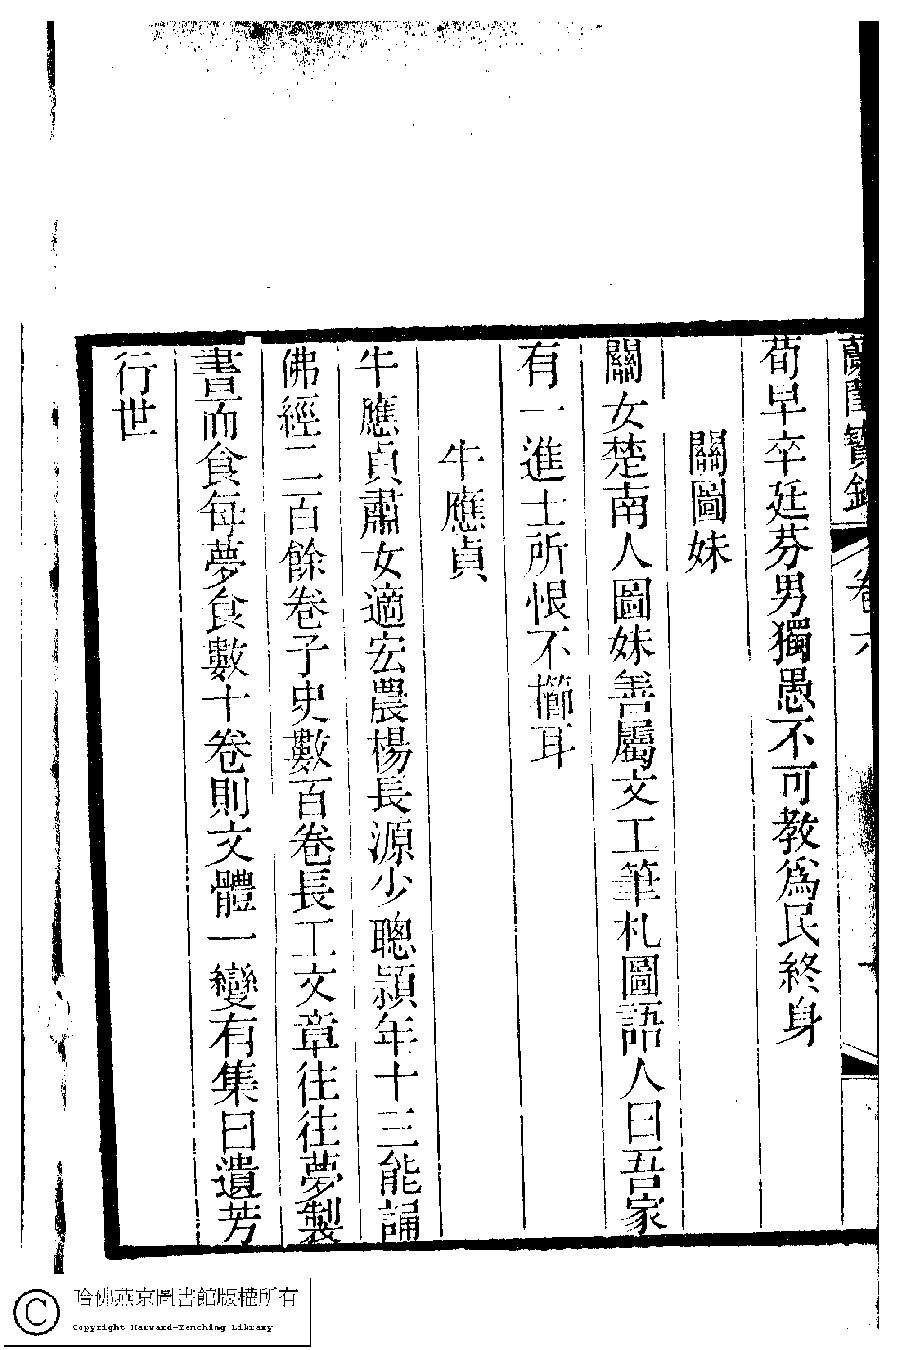 蘭閨寶錄 卷六
荀早卒廷芬男獨愚不可教爲民終身
關圖妹
關女楚南人圖妹善屬文工筆札圖語人曰吾家
有一進士所恨不櫛耳
牛應貞
牛應貞肅女適宏農楊長源少聰頴年十三能誦
佛經二百餘卷子史數百卷長工文章往往夢製
書而食每夢食數十卷則文體一變有集曰遺芳
行世
哈佛燕京圖書館版權所有
Copyright Harvard-Yenching Library